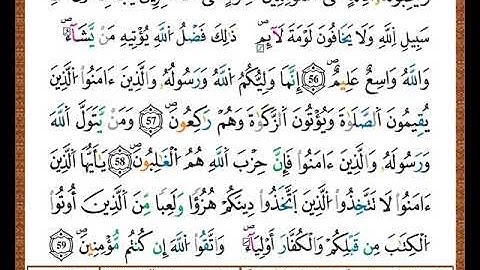 سَبِيلِ اِ۬للَّهِ وَلَا يَخَافُونَ لَوْمَةَ لَآئِمٖۖ ذَٰلِكَ فَضْلُ اُ۬للَّهِ يُؤْتِيهِ مَنْ يَّشَآءُۖ
وَاللَّهُ وَٰسِعٌ عَلِيمٌۖ 56 إِنَّمَا وَلِيُّكُمُ اُ۬للَّهُ وَرَسُولُهُۥ وَالَّذِينَ ءَامَنُواْ اُ۬لَّذِينَ
يُقِيمُونَ اَ۬لصَّلَوٰةَ وَيُؤْتُونَ اَ۬لزَّكَوٰةَ وَهُمْ رَٰكِعُونَۖ 57 وَمَنْ يَّتَوَلَّ اَ۬للَّهَ
وَرَسُولَهُۥ وَالَّذِينَ ءَامَنُواْ فَإِنَّ حِزْبَ اَ۬للَّهِ هُمُ اُ۬لْغَٰلِبُونَۖ 58 يَٰٓأَيُّهَا اَ۬لَّذِينَ
ءَامَنُواْ لَا تَتَّخِذُواْ اُ۬لَّذِينَ اَ۪تَّخَذُواْ دِينَكُمْ هُزُؤاٗ وَلَعِباٗ مِّنَ اَ۬لَّذِينَ أُوتُواْ
اُ۬لْكِتَٰبَ مِن قَبْلِكُمْ وَالْكُفَّارَ أَوْلِيَآءَۖ وَاتَّقُواْ اُ۬للَّهَ إِن كُنتُم مُّؤْمِنِينَۖ 59